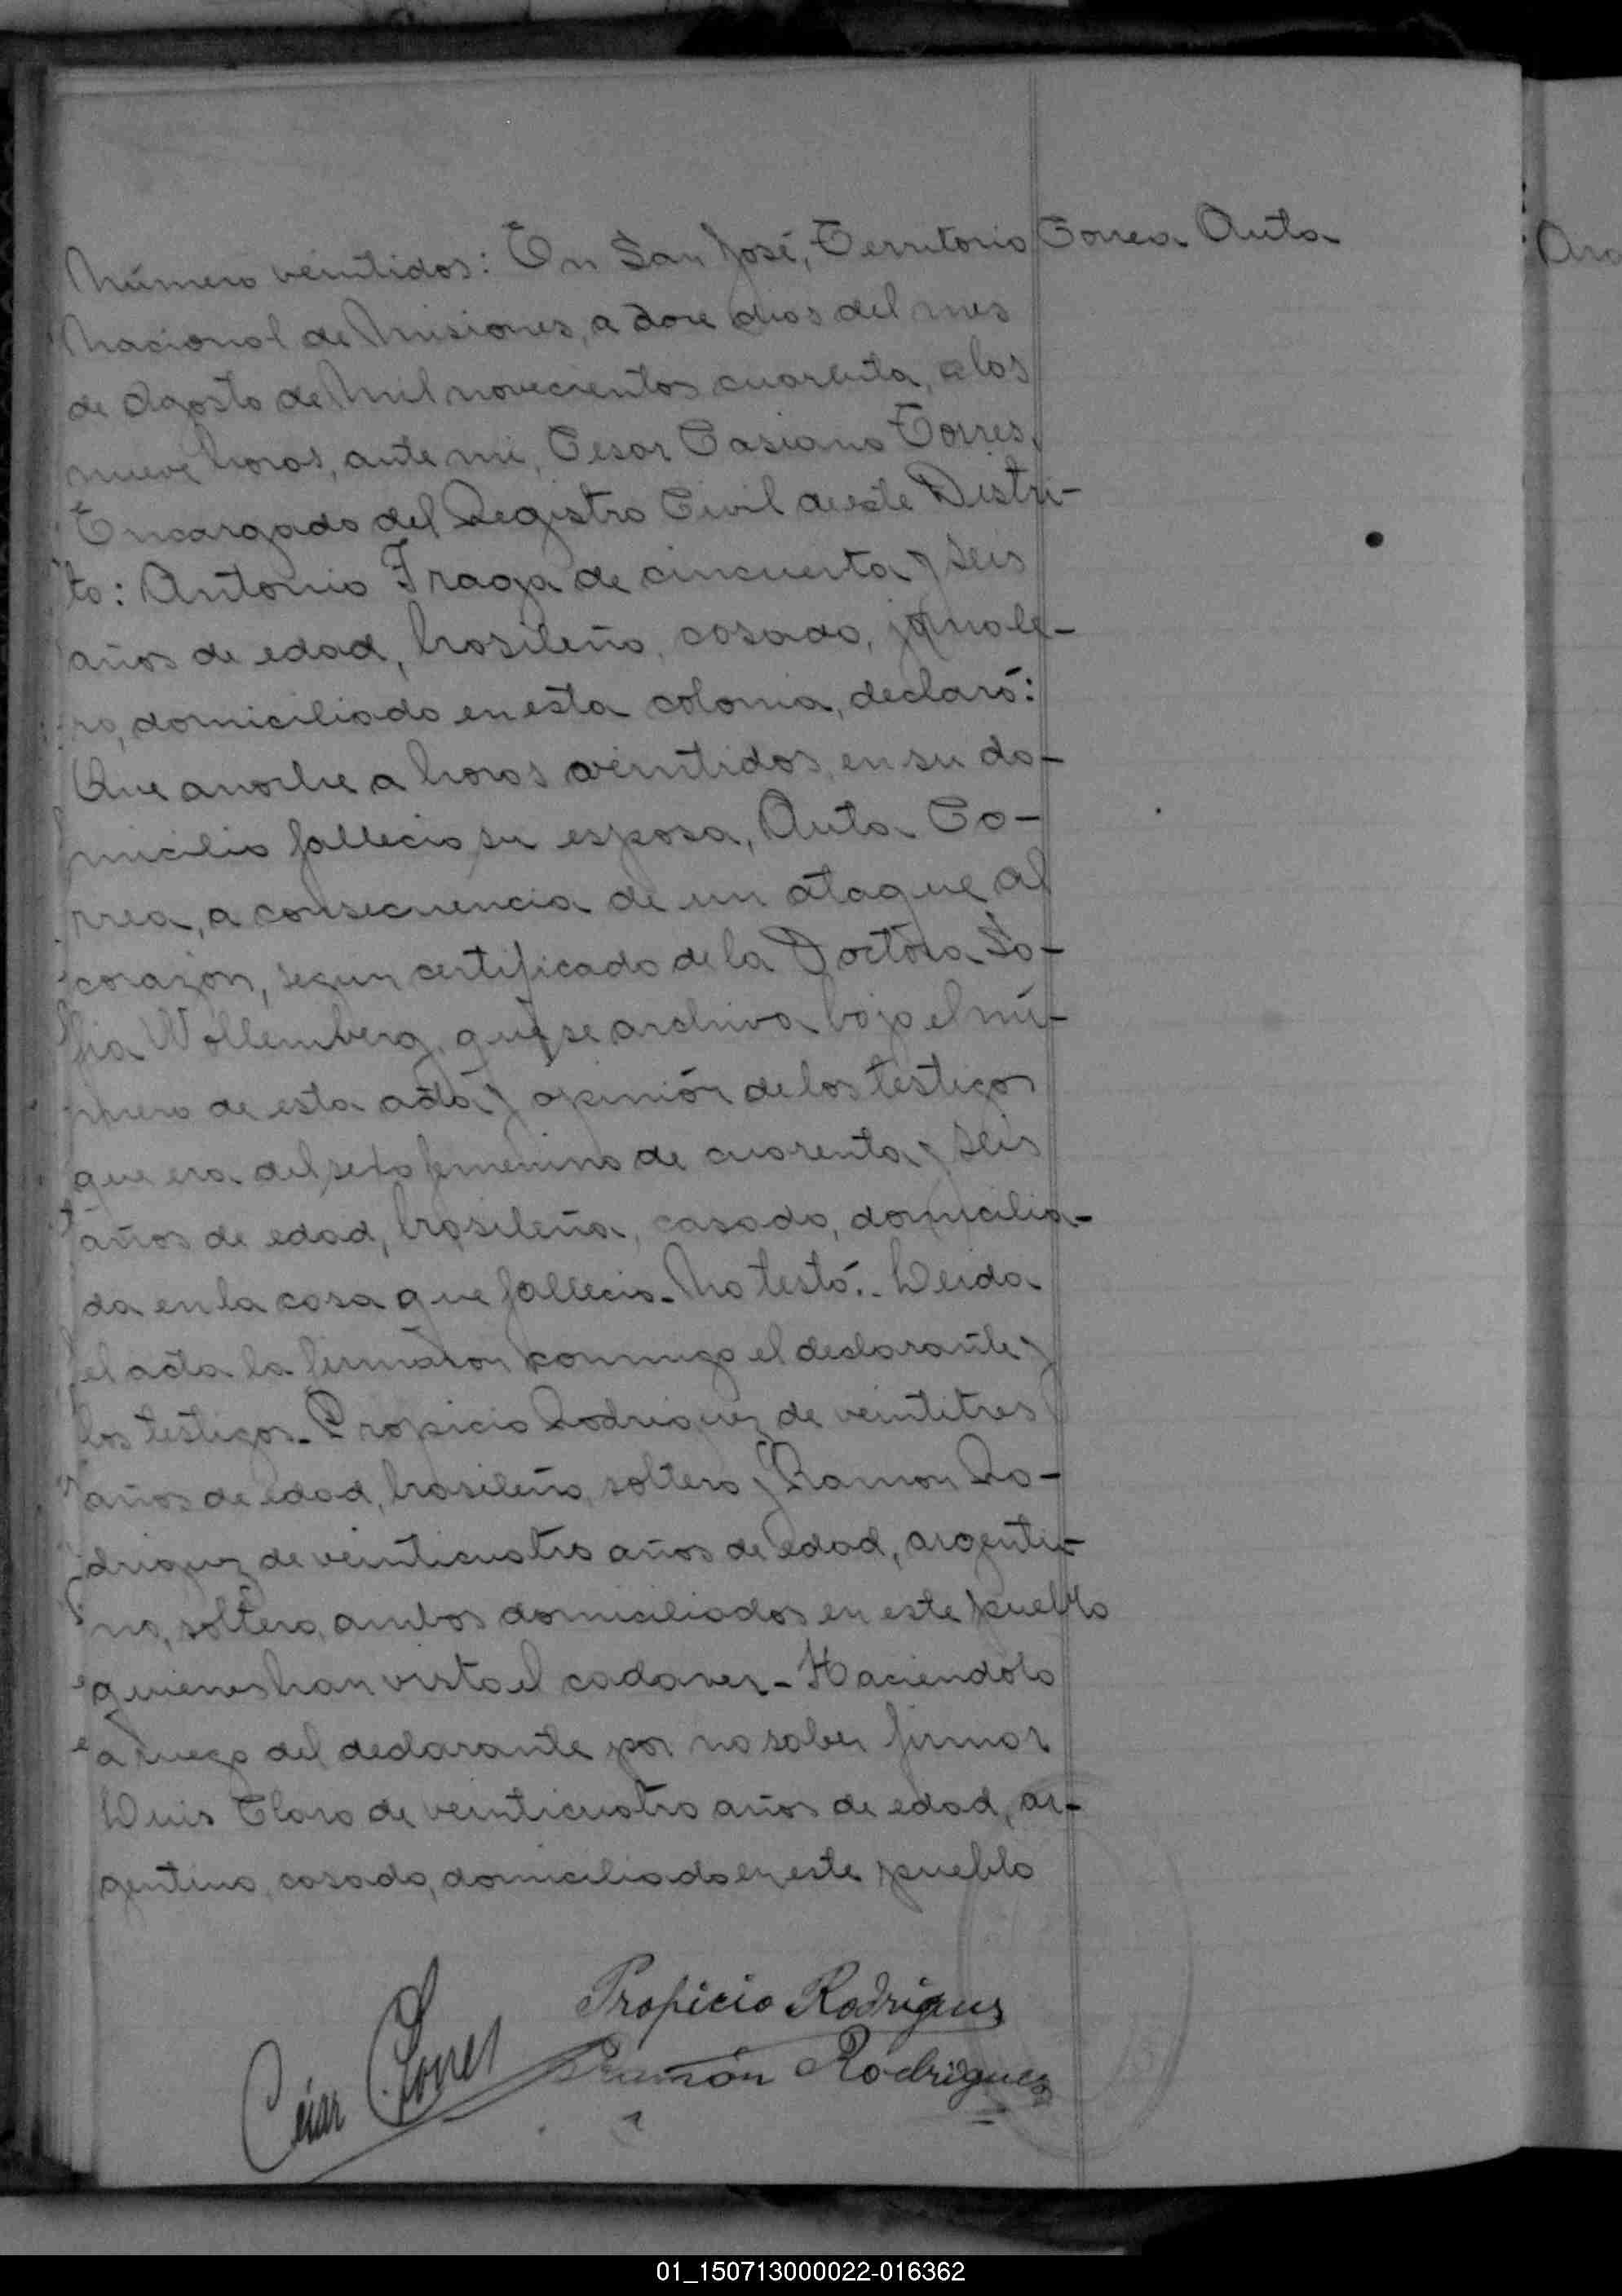 Número veintidos: En San José, Territorio
Correa Auta
Nacional de Misiones, a doce dias del mes
de Agosto de Mil novecientos cuarenta, a las
nueve horas, ante mi, Cesar Casiano Torres,
Encargado del Registro Civil de este Distri-
to: Antonio Fraga de cincuenta y seis
años de edad, brasileño, casado, jornale-
ro, domiciliado en esta colonia, declaró:
Que anoche a horas veintidos, en su do-
micilio fallecio su esposa, Auta Co-
rrea, a consecuencia de un ataque al
corazón, segun certificado de la Doctora So-
fia Wollemberg, que se archiva bajo el nú-
mero de esta acta y opinión de los testigos
que era del sexo femenino de cuarenta y seis
años de edad, brasileña, casada, domicilia-
da en la casa que fallecio. No testó.. Leida
el acta la firmaron conmigo el declarante y
los testigos. Propicio Rodriguez de veintitres
años de edad, brasileño, soltero y Ramon Ro-
driguez de veinticuatro años de edad, argenti-
no, soltero, ambos domiciliados en este pueblo
quienes han visto el cadaver. Haciendolo
a ruego del declarante por no saber firmar
Luis Claro de veinticuatro años de edad, ar-
gentino, casado, domiciliado en este pueblo
Propicio Rodrigues
César Torres
Ramón Rodriguez
01_150713000022-016362